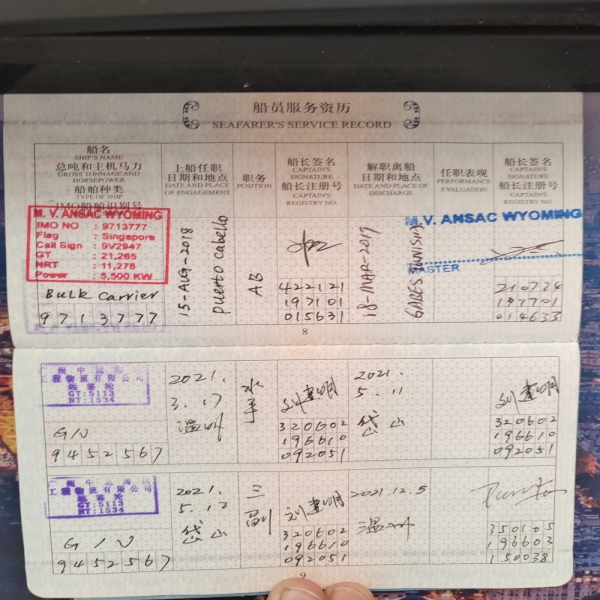 船员服务资历
SEAFARER'S SERVICE RECORD
船名
SHIP'S NAME
总吨和主机马力
GROSS TONNAGE AND
HORSEPOWER
船舶种类
TYPE OF SHIP
IMO船舶识别号
上船任职
日期和地点
DATE AND PLACE
OF ENGAGEMENT
职务
POSITION
船长签名
CAPTAIN'S
SIGNATURE
船长注册号
CAPTAIN'S
REGISTRY NO.
解职离船
日期和地点
DATE AND PLACE OF
DISCHARGE
任职表现
PERFORMANCE
EVALUATION
船长签名
CAPTAIN'S
SIGNATURE
船长注册号
CAPTAIN'S
REGISTRY NO.
M.V. ANSAC WYOMING
IMO NO : 9713777
Flag : Singapore
Call Sign : 9V2947
GT : 21,265
NRT : 11,276
Power : 5,500 KW
Bulk Carrier
9713777
15-AUG-2018
puerto cabello
AB
422121
197101
015631
18-MAR-2019
GABES TUNISIA
M.V. ANSAC WYOMING
MASTER
210724
197701
014633
8
工程物流有限公司
GT:5113
NT:1534
G/V
9452567
2021.
3.17
温州
水手
320602
196610
092051
2021.
5.11
岱山
320602
196610
092051
工程物流有限公司
GT:5113
NT:1534
G/V
9452567
2021.
5.12
岱山
三副
320602
196610
092051
2021.12.5
温州
350105
196603
150038
9